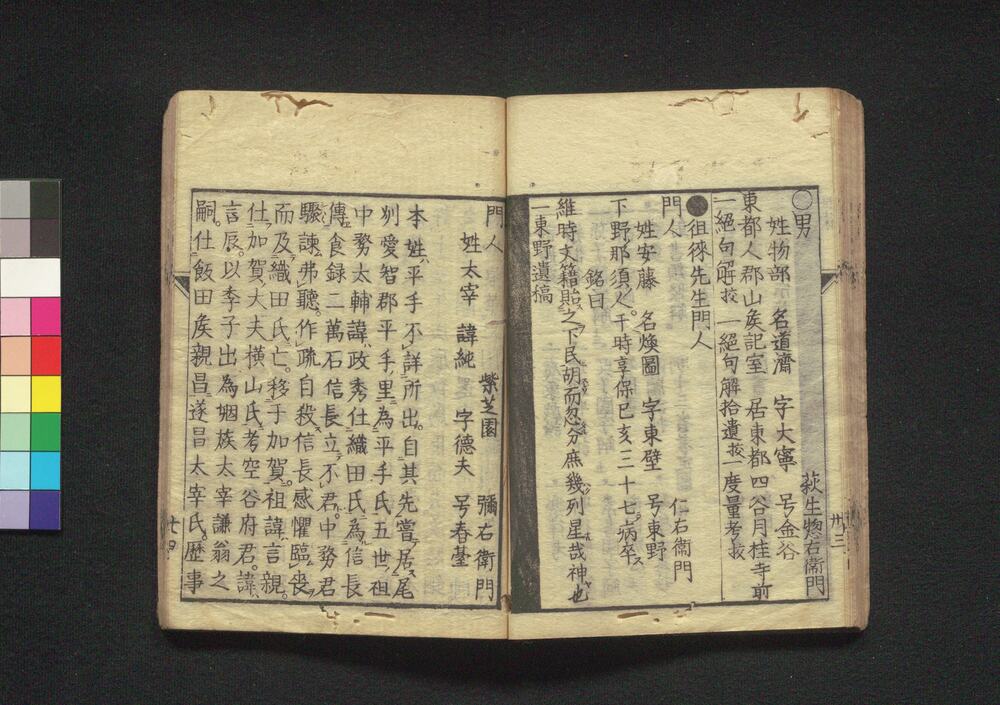 〇男　荻生惣右衛門
姓物部　名道濟　字大寧　号金谷
東都人郡山矦記室　居東都四谷月桂寺前
一絶句解挍　一絶句解拾遺挍　一度量考挍
●徂徠先生門人
門人　仁右衞門
姓安藤　名煥圖　字東壁　号東野
下野那須人于時享保己亥三十七病卒
銘曰
維時文籍貽之下民胡而忽分庶幾列星哉神也
一東野遺稿
卅三
門人　紫芝園　彌右衛門
姓太宰　諱純　字德夫　号春䑓
本姓平手不詳所出自其先嘗居尾
州愛智郡平手里為平手氏五世祖
中務太輔諱政秀仕織田氏為信長
傅食録二萬石信長立不君中務君
驟諫弗聽作疏自殺信長感懼臨喪
而及織田氏亡移于加賀祖諱言親
仕加賀大夫横山氏考空谷府君諱
言辰以季子出為姻族太宰謙翁之
嗣仕飯田矦親昌遂冒太宰氏歴事